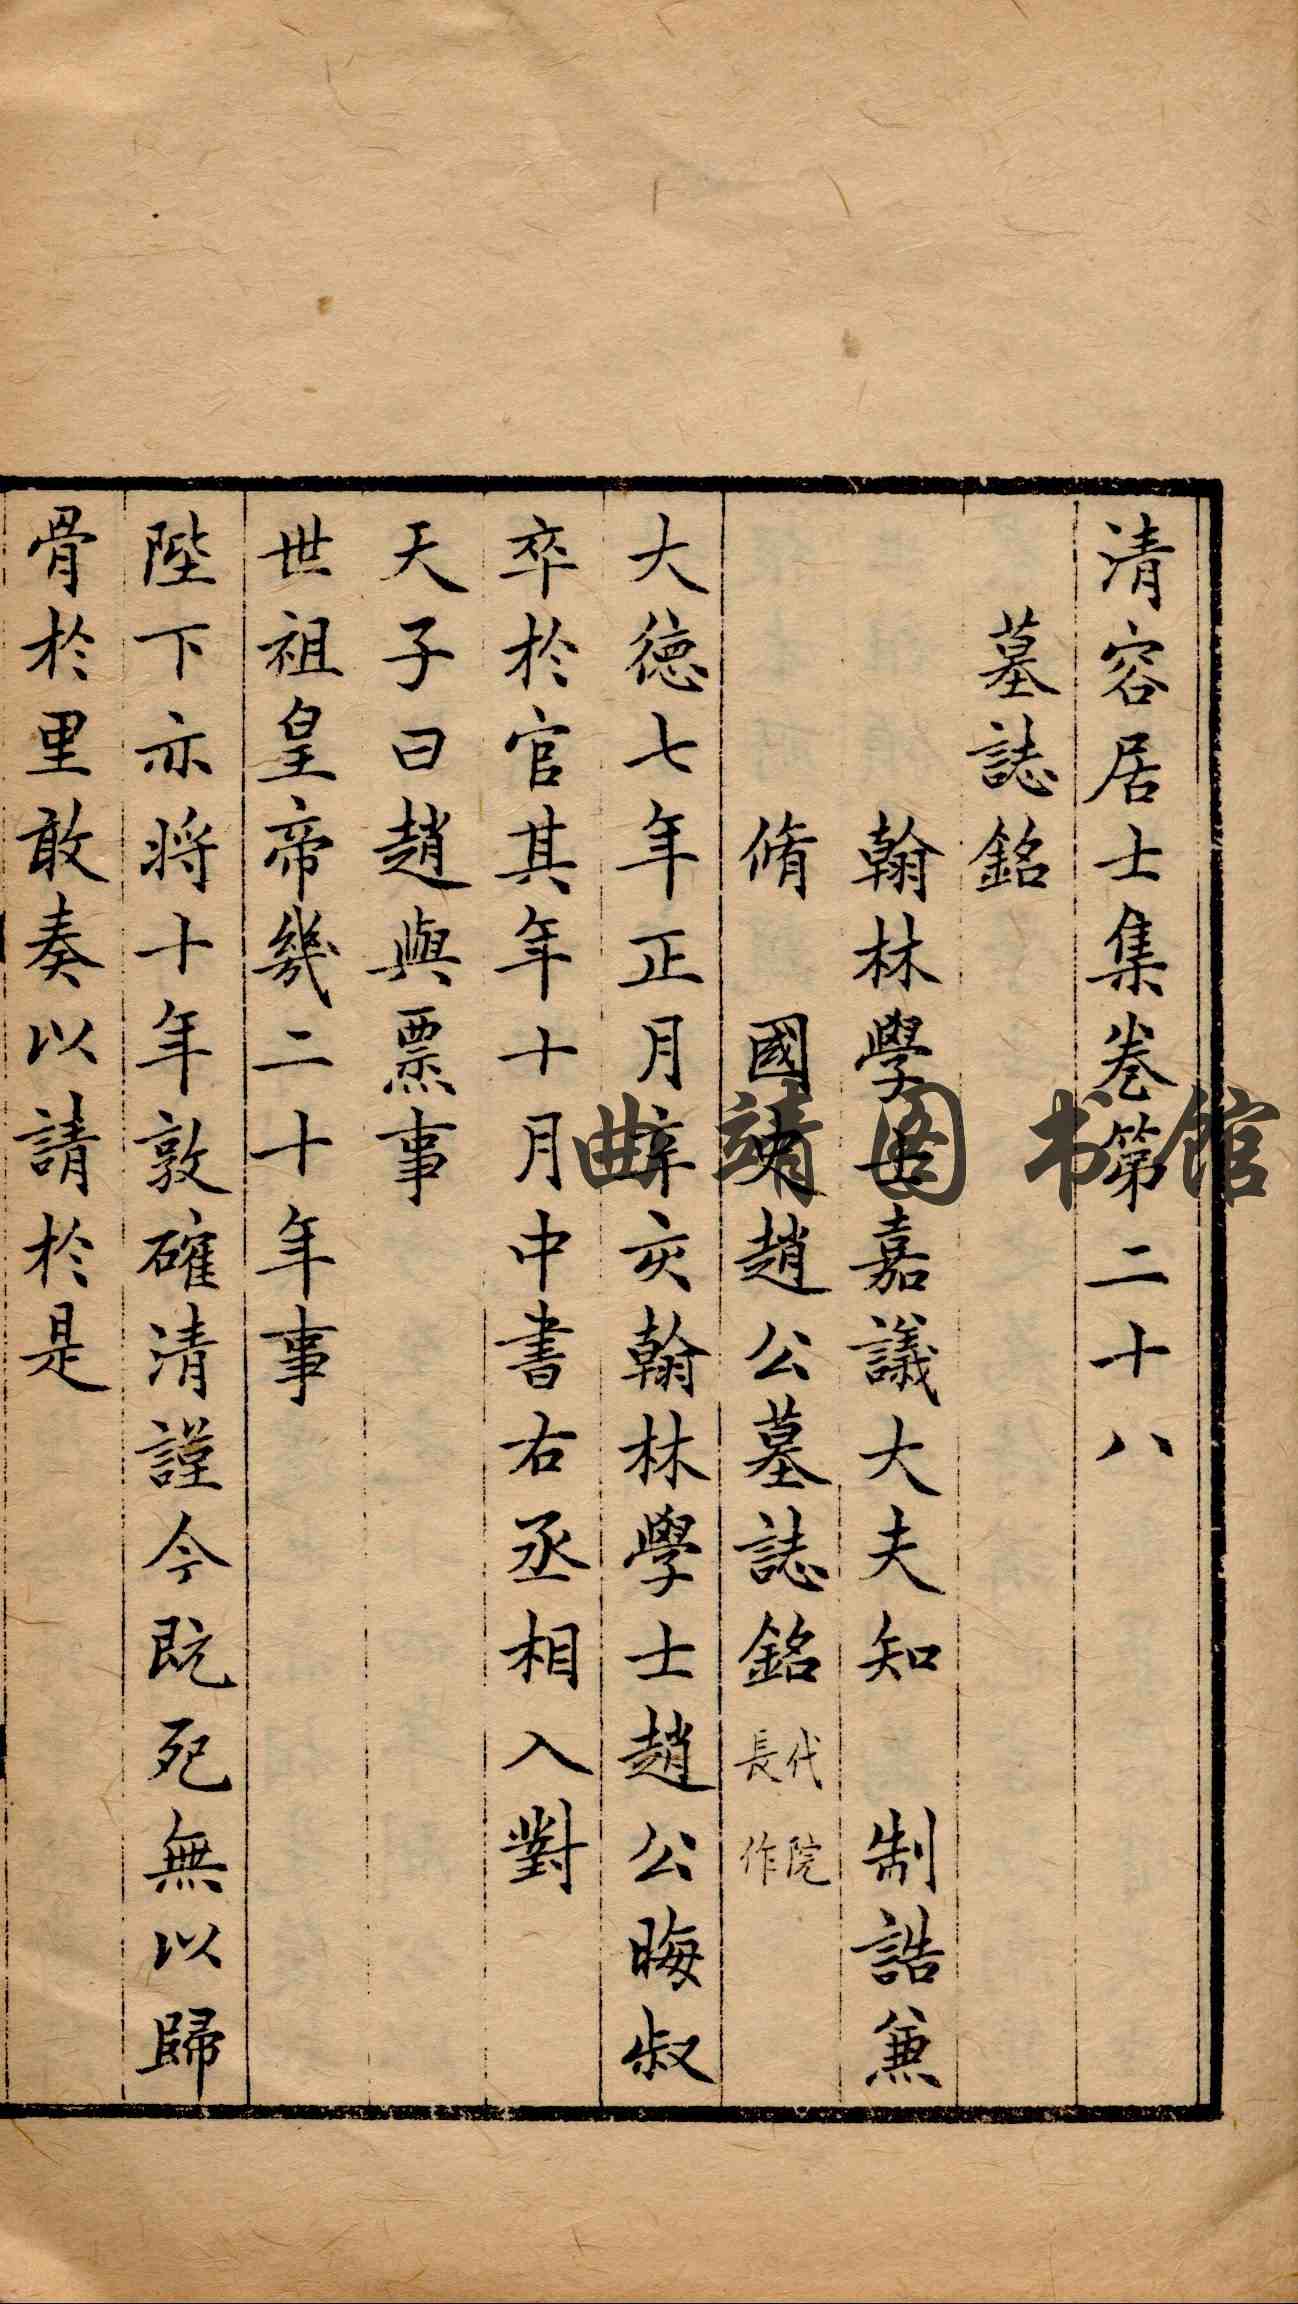 清容居士集卷第二十八
墓誌銘
翰林學士嘉議大夫知 制誥兼
脩 國史趙公墓誌銘 代院長作
大德七年正月辛亥翰林學士趙公晦叔
卒於官其年十月中書右丞相入對
天子曰趙與票事
世祖皇帝幾二十年事
陛下亦將十年敦確清謹今既死無以歸
骨於里敢奏以請於是
曲靖图书馆